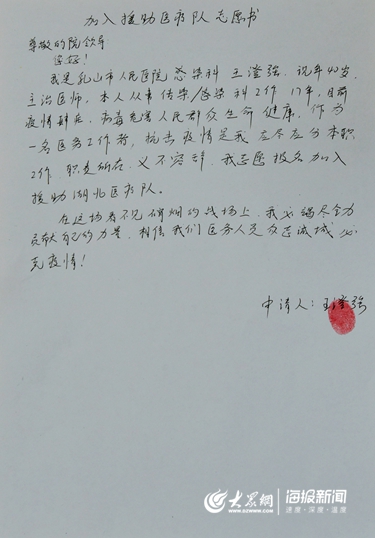 加入援助医疗队志愿书
尊敬的院领导
您好!
我是乳山市人民医院感染科 王澄强, 现年40岁,
主治医师, 本人从事传染/感染科工作17年, 目前
疫情肆虐, 病毒危害人民群众生命健康, 作为
一名医务工作者, 抗击疫情是我应尽应分本职
工作, 职责所在, 义不容辞, 我志愿报名加入
援助湖北医疗队。
在这场看不见硝烟的战场上, 我必竭尽全力
贡献自己的力量, 相信我们医务人员众志成城 必
克疫情!
申请人: 王澄强
大众网 海报新闻
速度·深度·温度